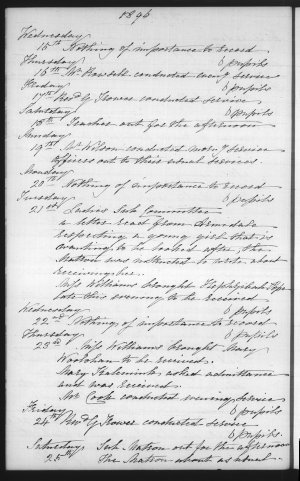 1896
Wednesday
15th Nothing of importance to record
Thursday 6 pupils
16th Mr Russell conducted eveng service
Friday 6 pupils
17th Revd G Trower conducted service
Saturday 6 pupils
18th Teacher out for the afternoon
Sunday
19th Mr Wilson conducted morng service
Officers out to their usual services.
Monday
20th Nothing of importance to record
Tuesday 6 pupils
21st Ladies Sub Committee
a letter read from Armidale
respecting a young girl that is
wanting to be looked after, the
Matron was instructed to write about
receiving her.
Miss Williams brought Hephzibah
late this evening to be received
Wednesday 6 pupils
22nd Nothing of importance to record
Thursday 6 pupils
23rd Miss Williams brought Mary
to be received.
Mary asked admittance
and was received.
Mr Cook conducted evening service
Friday 6 pupils
24th Revd G Trower conducted service
6 pupils.
Saturday Sub Matron out for the afternoon
25th The Matron about as usual.